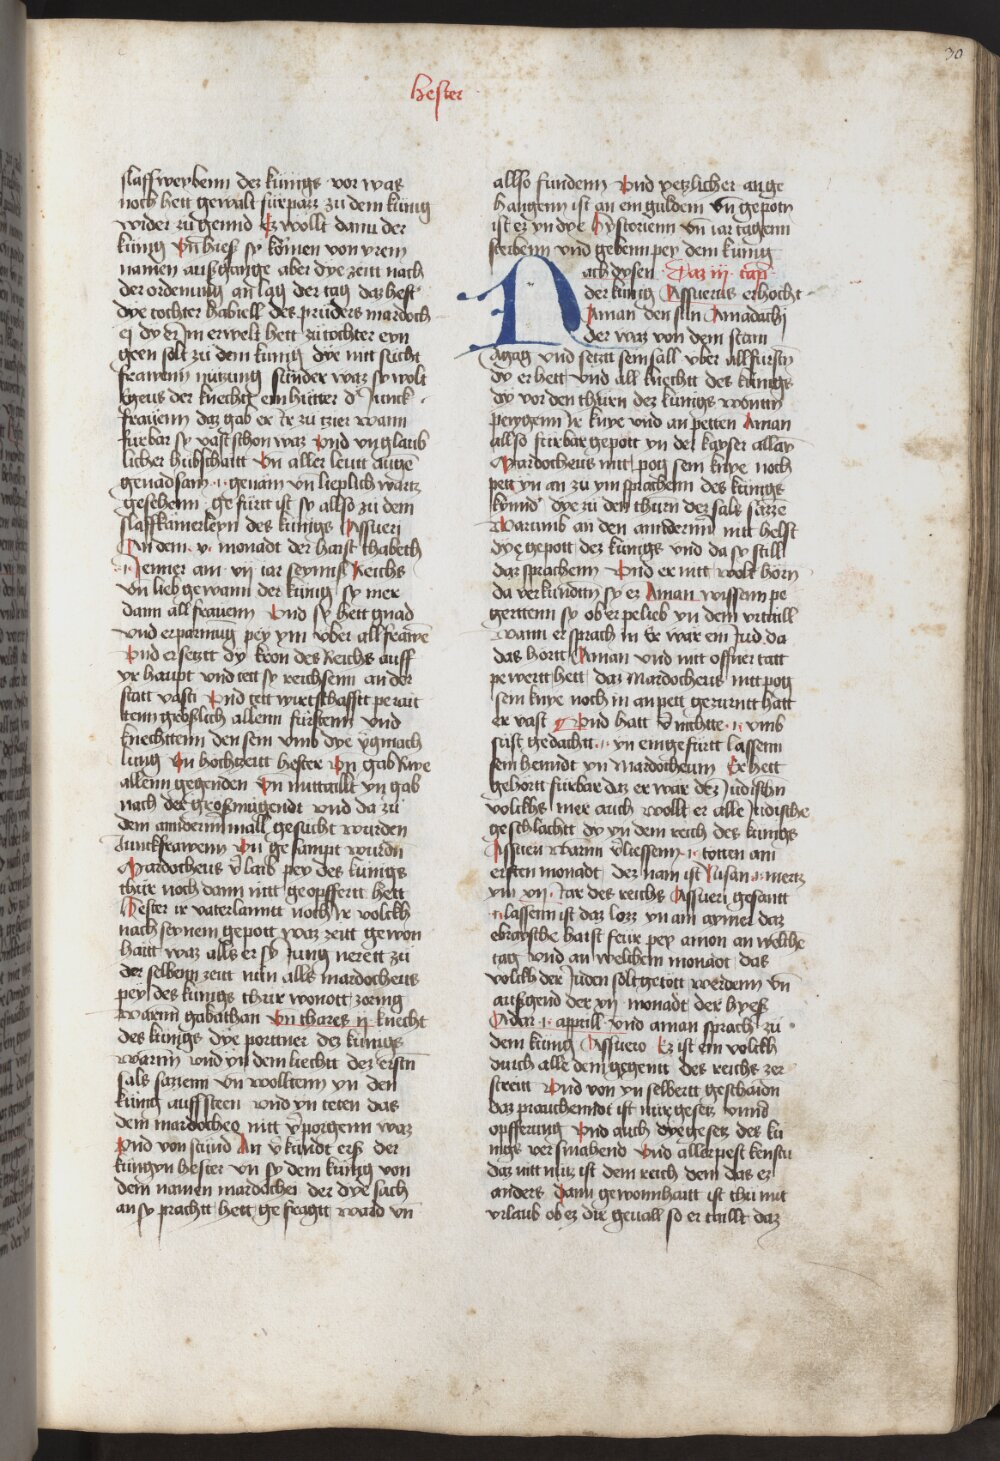 30
hester
slaffweybenn dez künigs vor was
noch hett gewalt fürpazz zu dem künig
wider zu gennd Ez wollt dann der
künig Vn̄ hieß sy kömen von yrem
namen Außgange aber dye zeitt nach
der ordenung an lag der tag daz hest
dye tochter habiell des pruders mardoch
ej dy er Im erwelt hett zu tochter eyn
geen solt zu dem künig dye nitt sücht
frawenn nützung sunder waz sy wolt
Egeus der knecht ein hütter d' Junck
frawenn daz gab er Ir zu tzier wann
fürbar sy vast schon waz Vnd vnglaub
licher hubschaitt Vn̄ aller leutt augē
genadsam .i. genäm vn̄ lieplich wartz
gesehenn ge fürtt ist sy allso zu dem
slaffkamerleyn des künigs Assueri
An dem .x. monadt der haist thabeth
.i. Jenner am vij iar seyniß Reichs
vn̄ lieb gewann der künig sy mer
dann all frawenn Vnd sy hett gnad
vnd erparmūg pey ym vber all frawē
Vnd er setzt dy kron des Reichs auff
yr haupt vnd tett sy reichsenn an der
statt vasti Vnd tett wirtschafftt peraut
tenn größlich allenn fürstenn vnd
knechttenn den sein vmb dye v̄gmach
lung Vn̄ hochzeitt hester Vn̄ gab Rwe
allenn gegenden Vn̄ mittaillt vn̄ gab
nach der großmügende vnd da zu
dem anndernmall gesücht wurden
Junckfrawenn Vn̄ ge sampt wurdn̄
Mardocheus v̄laib pey des künigs
thür noch dann nitt geoffertt hett
Hester ir vaterlanntt noch Ir volckh
nach seynem gepott waz zeitt gewon
haitt waz alls er sy Jung nerett zu
der selbenn zeitt nun alls mardocheus
pey des künigs thür wonott zornig
warnn gabathan Vn̄ thares ij knecht
des künigs dye portner dez künigs
warnn vnd yn dem liechtt dez erstn̄
sals sazzenn vn̄ wolltenn yn den
künig auffsteen vnd yn teten das
dem mardocheo nitt v̄porgenn waz
Vnd von stund An v̄kündt erß der
küngyn hester vn̄ sy dem künig von
dem namen mardochei der dye sach
an sy prachtt hett ge fragtt ward vn̄
allso fundenn Vnd yetzlicher an ge
hangenn ist an ein guldem Vn̄ gepotn̄
ist ez yn dye Hystorienn vn̄ iar tagenn
screibenn vnd gebenn pey dem künig
Nach dysen Daz iij cap
der künig Assuerus erhocht
Aman den sun Amadachj
der waz von dem stam
Agag vnd setzt sein sall vber all fürstn̄
dy er hett vnd all knechtt des künigs
dy vor den thüren dez künigs wontn̄
peygenn Ir knye vnd an petten Aman
allso fürbar gepott yn der kayser allay
Mardocheus nitt pog sein knye noch
pett yn an zu ym sprachenn des künigs
kynnd' dye zu den thürn dez sals sazzē
Warumb an den anndernn nitt helst
dye gepott dez künigs vnd da sy still
daz sprachenn Vnd er nitt wolt hörn
da verkundttn̄ sy ez Aman wissenn pe
gerttenn sy ob er pelieb yn dem vrtaill
wann er sprach in Er wär ein Jud da
das hortt Aman vnd mit offner tatt
pe wertt hett daz Mardocheus nitt pog
sein knye noch in anpett gezurntt hatt
er vast Vnd hatt v̄ nichtte .i. vmb
süst gedachtt .i. yn eingefürtt lassenn
sein henndt yn Mardocheum Er hett
gehortt fürbar daz er wär dez Judischn̄
volckhs mer auch wollt er alle Judische
geschlächtt dy yn dem reich des künigs
Assueri warnn v̄liessenn .i. totten am
ersten monadt dez nam ist Nusan .i. mertz
ym xij Jar des reichs Assueri gesantt
.i. lassenn ist daz lozz yn am aymer daz
ebraysche haist feür pey amon an welchē
tag vnd an welichem monadt das
volckh der Juden solt getött werdenn vn̄
außgend der xij monadt der hyeß
Adar .i. apprill Vnd aman sprach zu
dem künig Assuero Ez ist ein volckh
durch alle dein gegentt des reichs zer
streitt Vnd von yn selbertt geschaidn̄
daz prauchenndt ist niwe gesetz vnnd
opfferung Vnd auch dye gesetz des kü
nigs ver smahend Vnd aller pest kenstu
daz nitt nutz ist dem reich dein das ez
anders dann gewonnhaitt ist thu mit
vrlaub ob ez dir geuall so er taillt daz